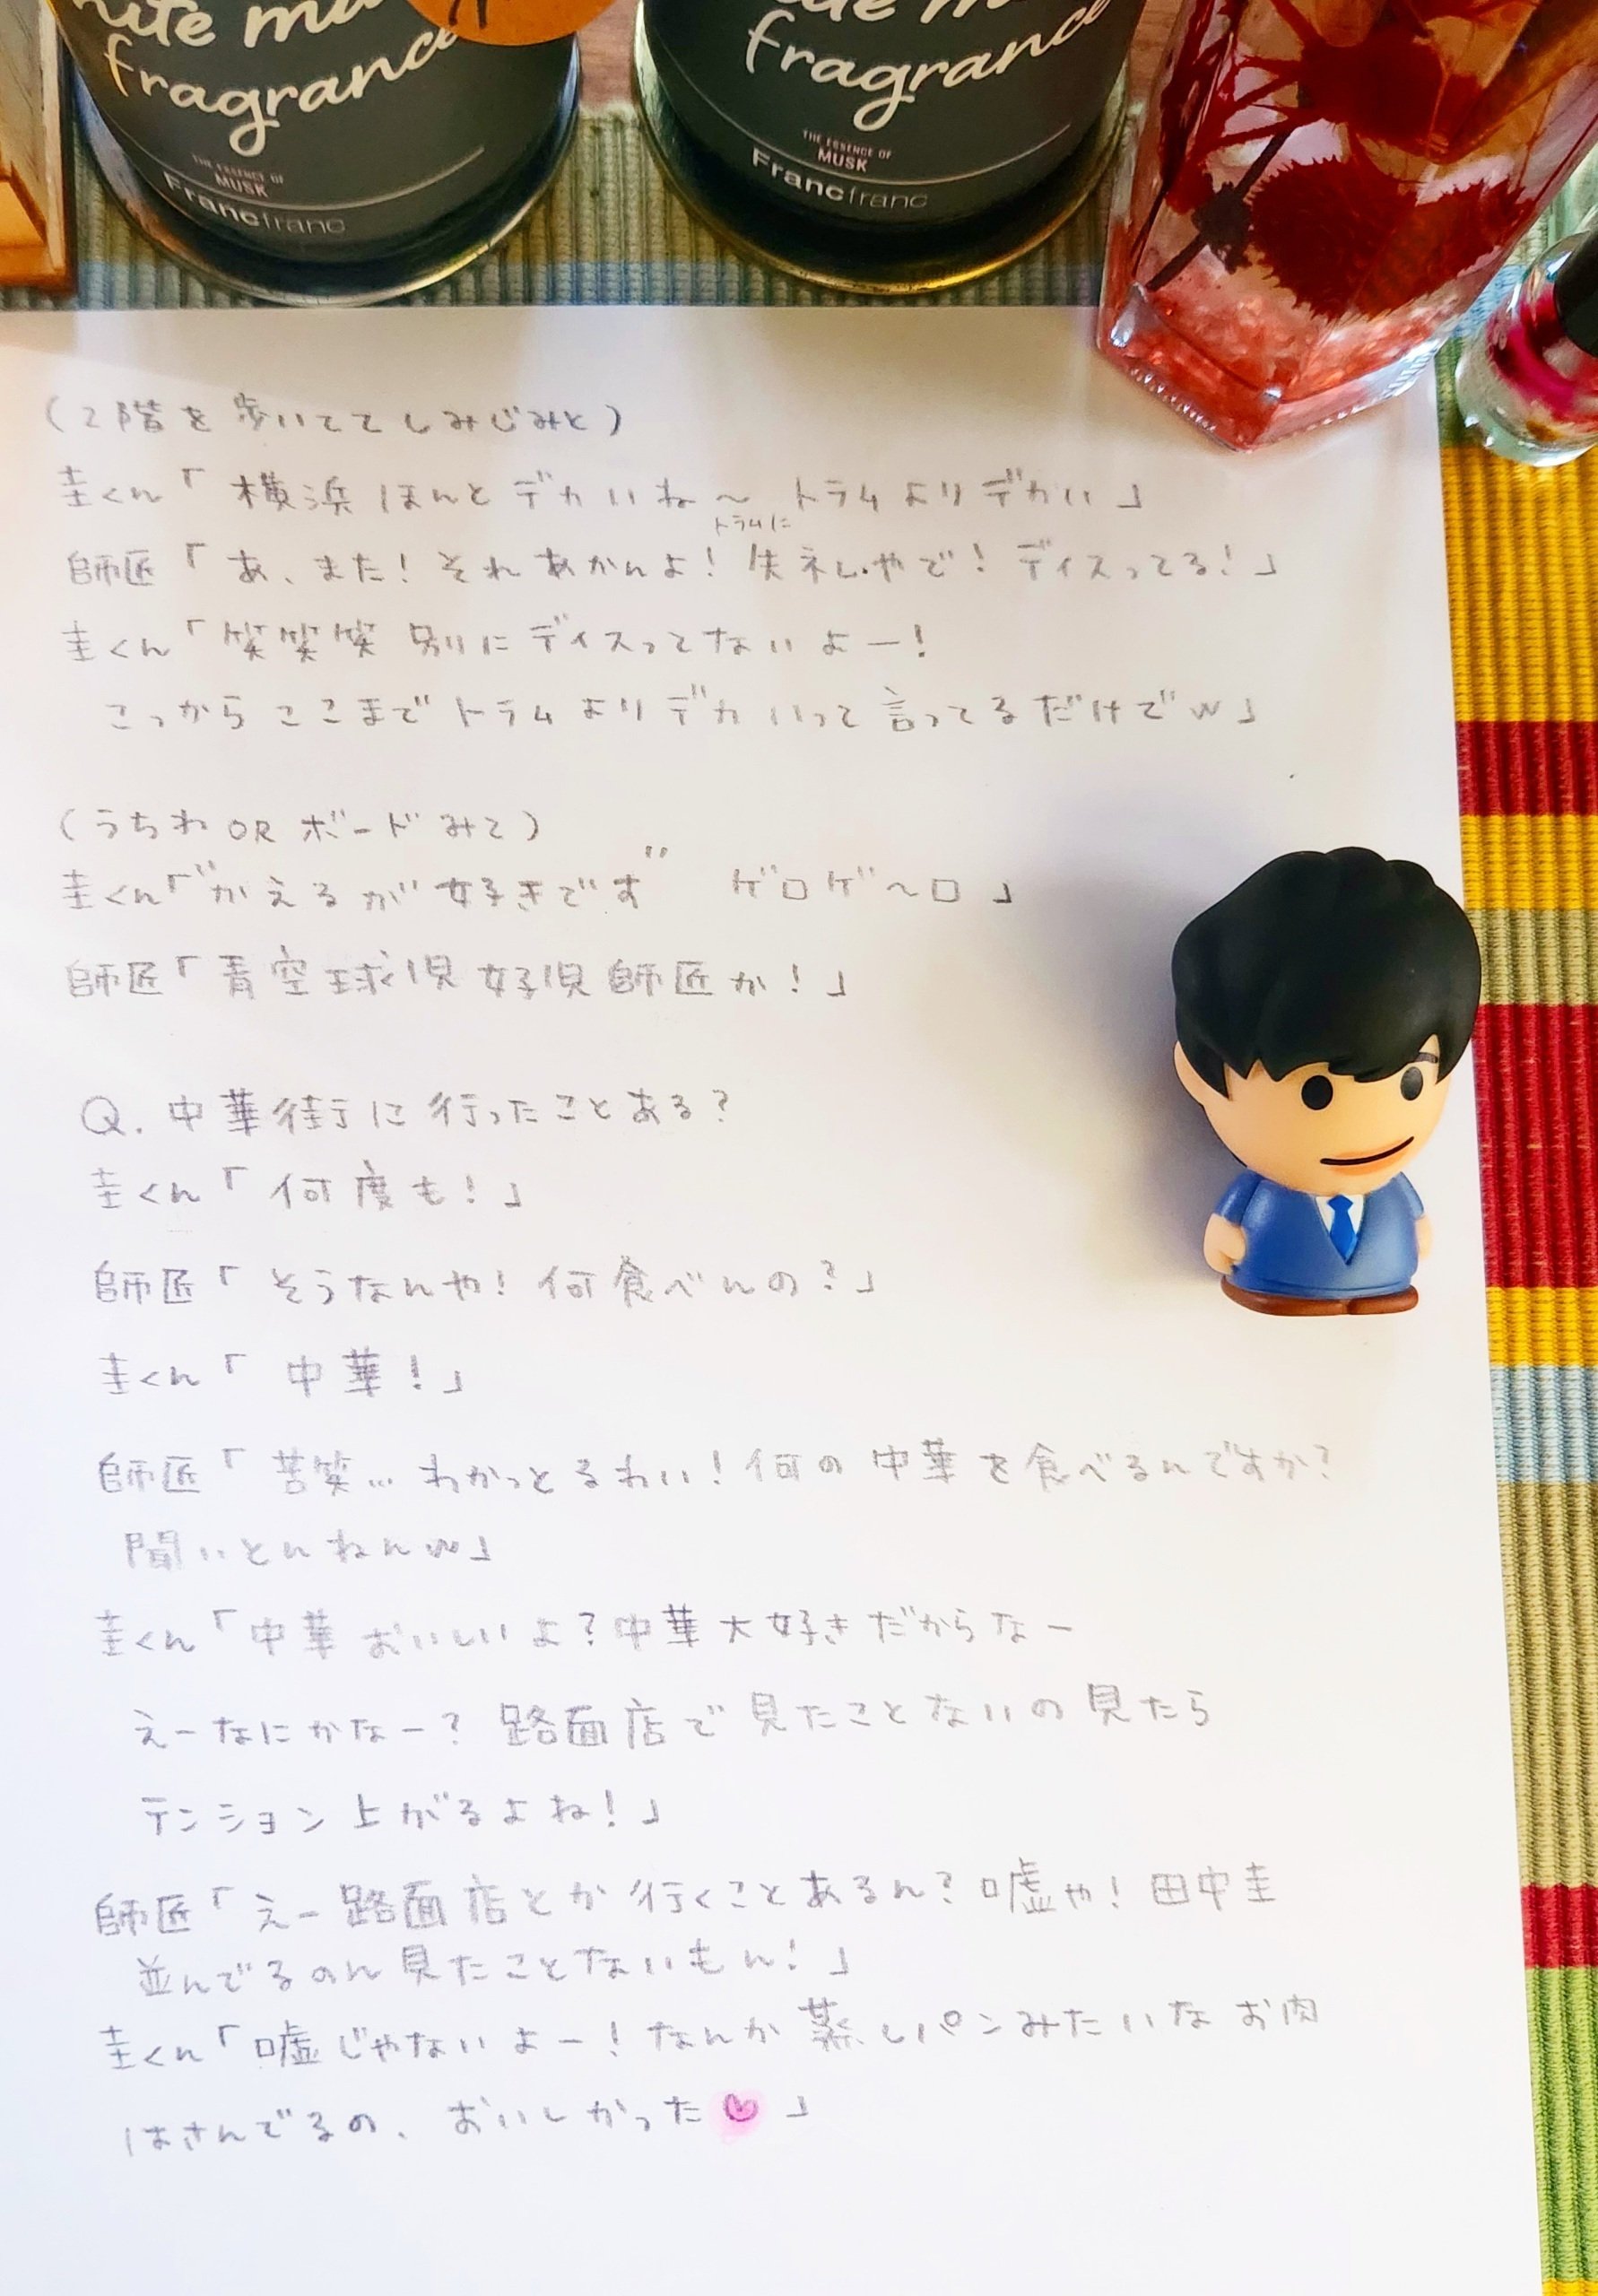 fragrance
THE ESSENCE OF
MUSK
Francfranc
fragrance
THE ESSENCE OF
MUSK
Francfranc
(2階を歩いててしみじみと)
圭くん「横浜ほんとデカいね〜トラムよりデカい」
トラムに
師匠「あ、また!それあかんよ!失礼やで!ディスってる!」
圭くん「笑笑笑 別にディスってないよー!
こっからここまでトラムよりデカいって言ってるだけでw」
(うちわORボードみて)
圭くん「"かえるが好きです" ゲロゲ〜ロ」
師匠「青空球児好児師匠か!」
Q.中華街に行ったことある?
圭くん「何度も!」
師匠「そうなんや!何食べんの?」
圭くん「中華!」
師匠「苦笑…わかっとるわい!何の中華を食べるんですか?
聞いとんねんw」
圭くん「中華おいしいよ?中華大好きだからなー
えーなにかなー?路面店で見たことないの見たら
テンション上がるよね!」
師匠「えー路面店とか行くことあるん?嘘や!田中圭
並んでるのん見たことないもん!」
圭くん「嘘じゃないよー!なんか蒸しパンみたいなお肉
はさんでるの、おいしかった♡」